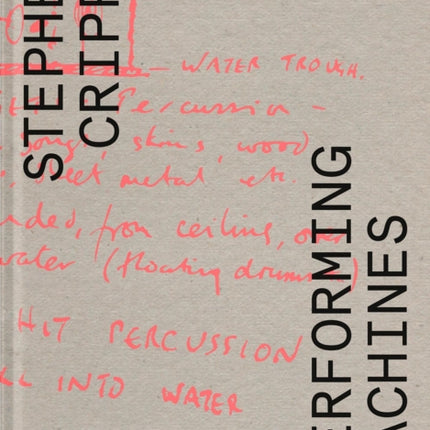 STEPHE
CRIPP
— WATER TROUGH.
Percussion –
gongs, skins, wood
sheet metal etc.
nded, from ceiling, over
water (floating drums)
HIT PERCUSSION
LL INTO WATER
ERFORMING
ACHINES